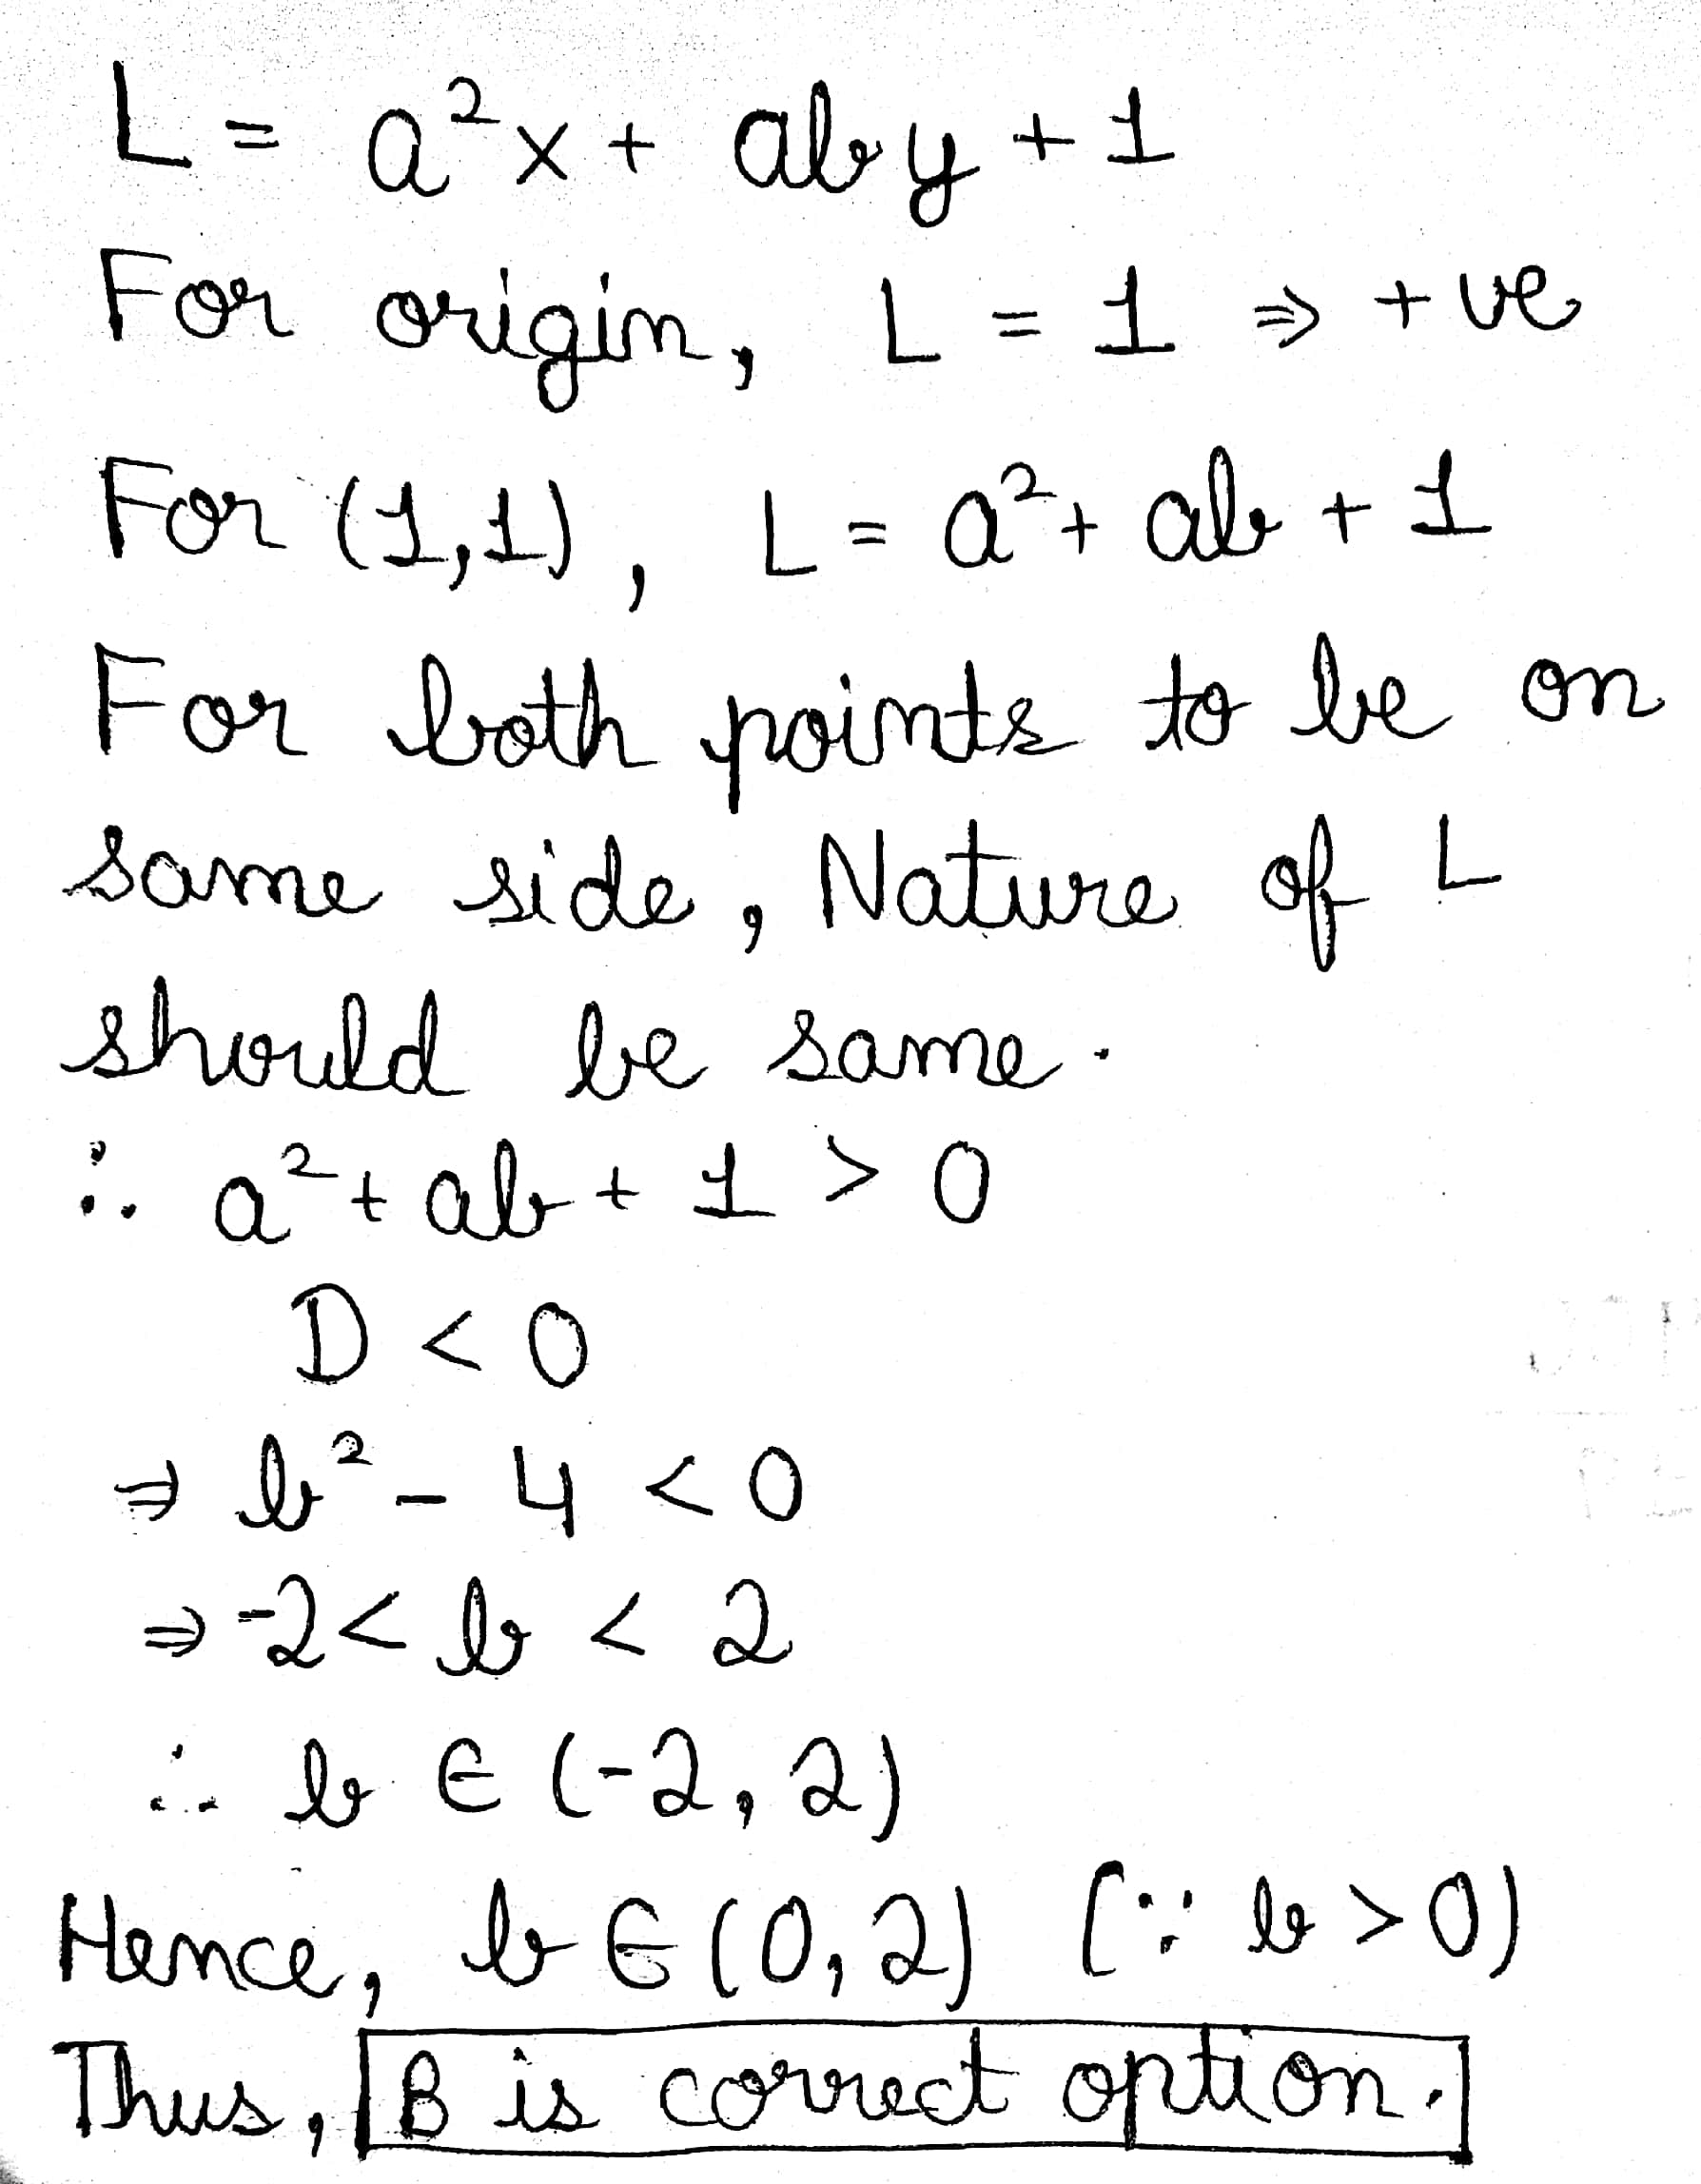 L = a²x + aby + 1
For origin, L = 1 ⇒ +ve
For (1,1), L = a² + ab + 1
For both points to be on
same side, Nature of L
should be same.
∴ a² + ab + 1 > 0
D < 0
⇒ b² - 4 < 0
⇒ -2 < b < 2
∴ b ∈ (-2, 2)
Hence, b ∈ (0, 2) (∵ b > 0)
Thus, B is correct option.